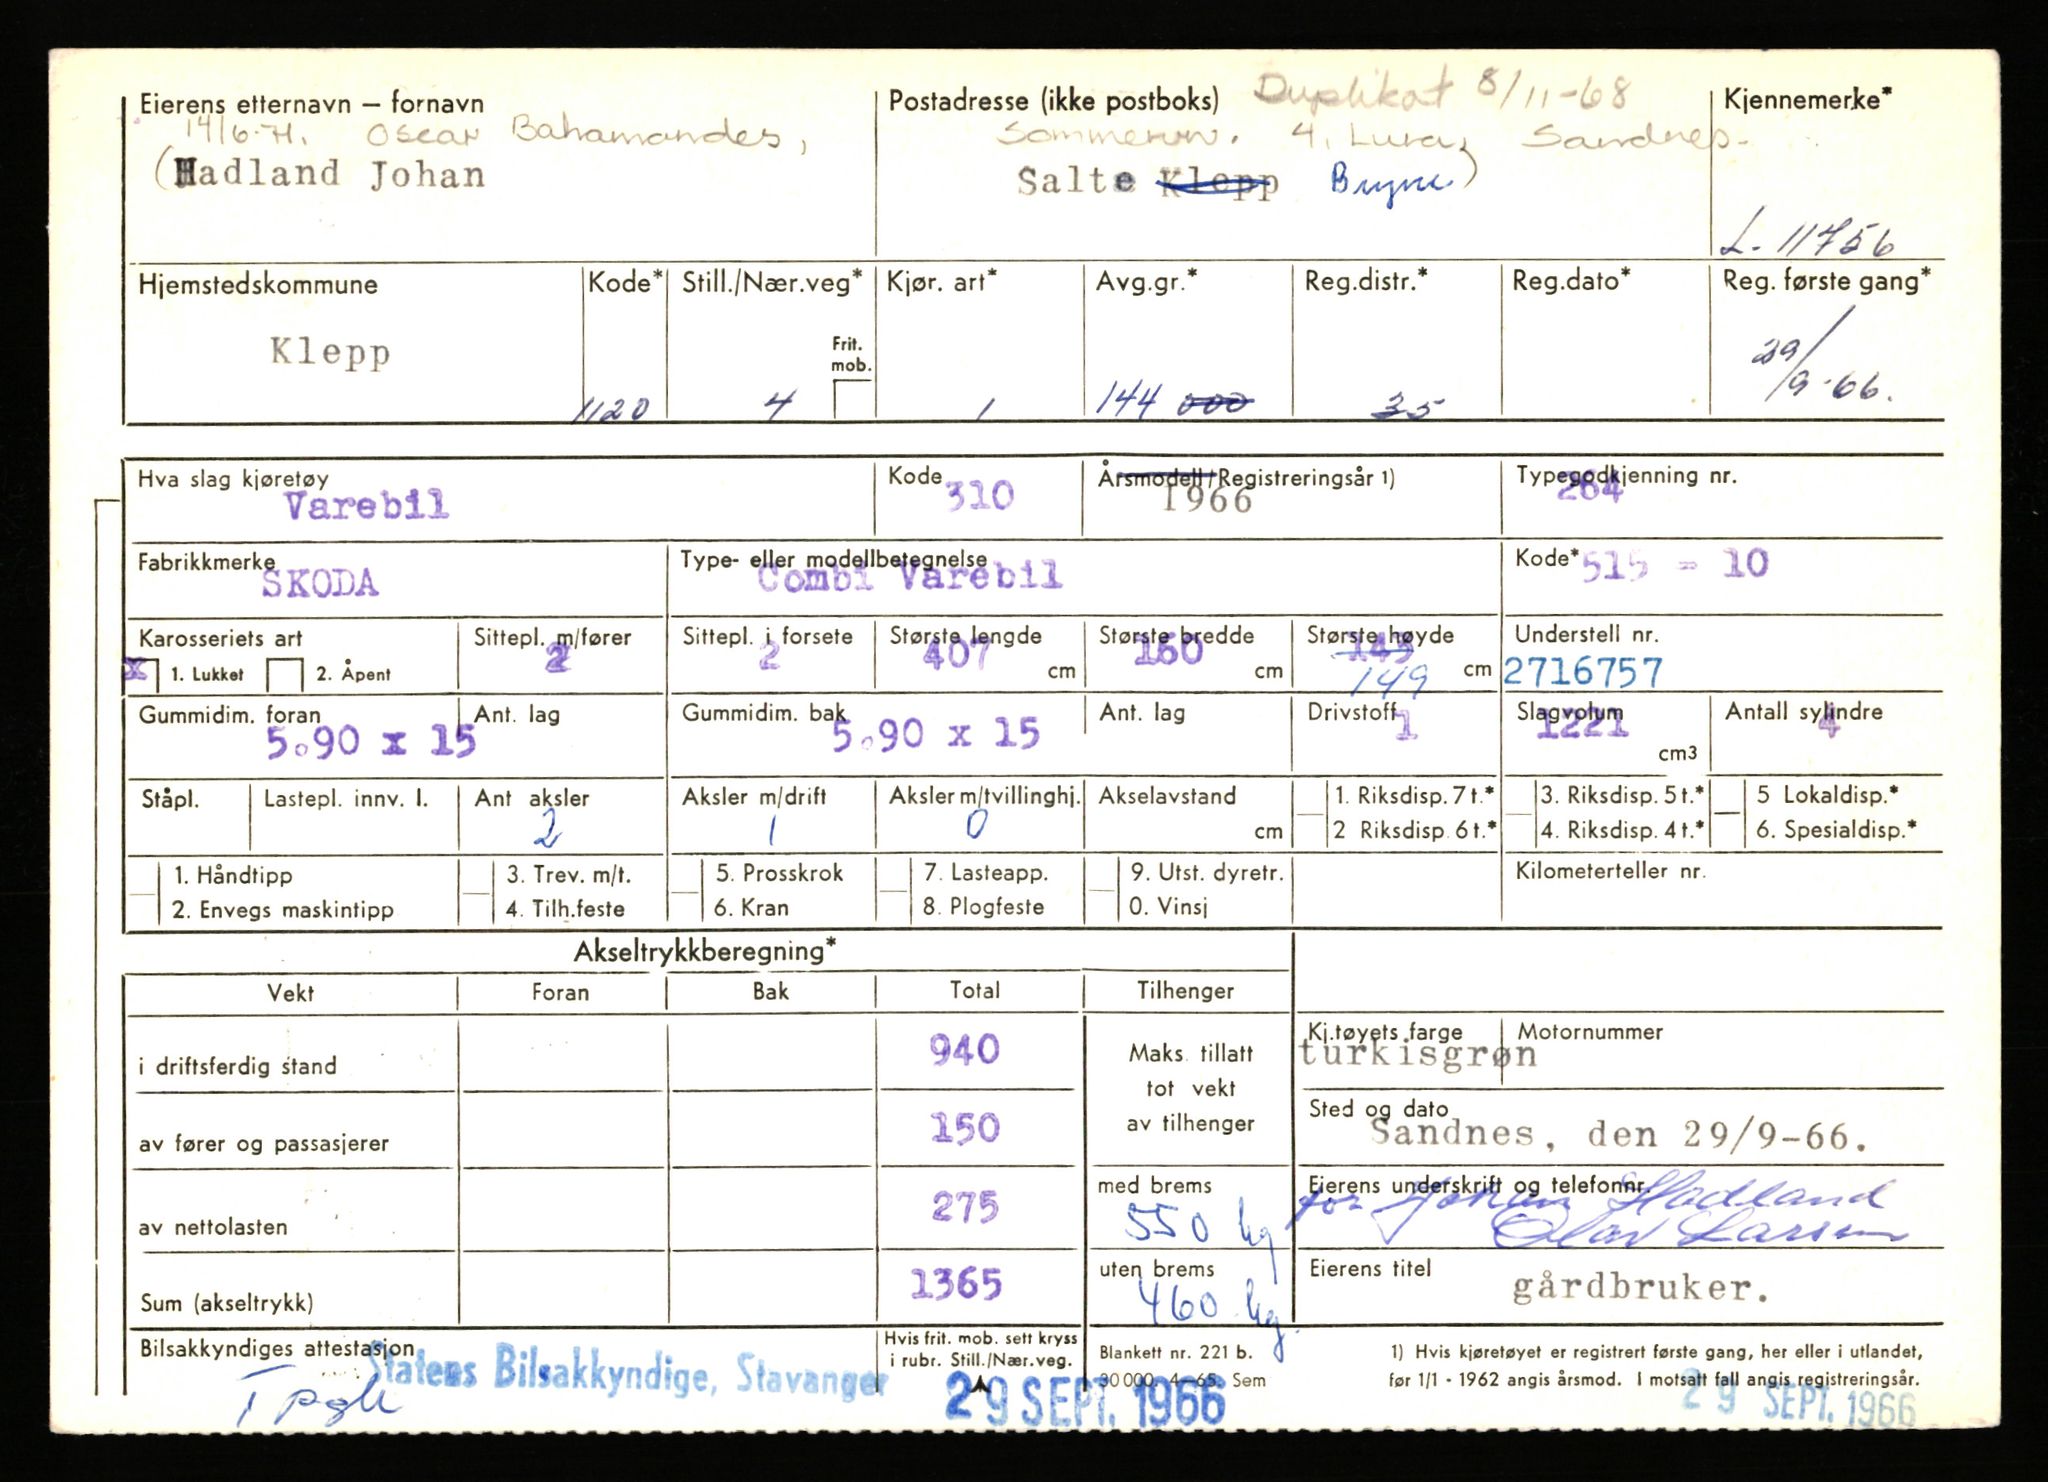 Eierens etternavn — fornavn
Postadresse (ikke postboks) Duplikat 8/11-68
Kjennemerke*
14/6-71. Oscar Bahamondes, Sommervn. 4, Lura, Sandnes.
(Hadland Johan
Salte Klepp Bryne)
L. 11756
Hjemstedskommune
Kode* Still./Nær.veg* Kjør. art* Avg.gr.* Reg.distr.* Reg.dato* Reg. første gang*
Klepp
Frit. mob.
1120 4 1 144 000 35 29/9-66.
Hva slag kjøretøy
Varebil
Kode 310
Årsmodell/Registreringsår 1)
1966
Typegodkjenning nr.
264
Fabrikkmerke
SKODA
Type- eller modellbetegnelse
Combi Varebil
Kode* 515 - 10
Karosseriets art
x 1. Lukket 2. Åpent
Sittepl. m/fører
2
Sittepl. i forsete
2
Største lengde
407 cm
Største bredde
160 cm
Største høyde
143
149 cm
Understell nr.
2716757
Gummidim. foran
5.90 x 15
Ant. lag
Gummidim. bak
5.90 x 15
Ant. lag
Drivstoff
1
Slagvolum
1221 cm3
Antall sylindre
4
Ståpl.
Lastepl. innv. l.
Ant aksler
2
Aksler m/drift
1
Aksler m/tvillinghj.
0
Akselavstand
cm
1. Riksdisp. 7 t.*
2 Riksdisp. 6 t.*
3. Riksdisp. 5 t.*
4. Riksdisp. 4 t.*
5 Lokaldisp.*
6. Spesialdisp.*
1. Håndtipp
2. Envegs maskintipp
3. Trev. m/t.
4. Tilh.feste
5. Prosskrok
6. Kran
7. Lasteapp.
8. Plogfeste
9. Utst. dyretr.
0. Vinsj
Kilometerteller nr.
Akseltrykkberegning*
Vekt Foran Bak Total Tilhenger
i driftsferdig stand 940
av fører og passasjerer 150
av nettolasten 275
Sum (akseltrykk) 1365
Maks. tillatt
tot vekt
av tilhenger
med brems
550 kg
uten brems
460 kg.
Kj.tøyets farge
turkisgrøn
Motornummer
Sted og dato
Sandnes, den 29/9-66.
Eierens underskrift og telefonnr.
for Johan Hadland
Olav Larsen
Eierens titel
gårdbruker.
Bilsakkyndiges attestasjon
Statens Bilsakkyndige, Stavanger
Hvis frit. mob. sett kryss
i rubr. Still./Nær.veg.
29 SEPT. 1966
Blankett nr. 221 b.
30 000. 4 - 65. Sem
1) Hvis kjøretøyet er registrert første gang, her eller i utlandet,
før 1/1 - 1962 angis årsmod. I motsatt fall angis registreringsår.
29 SEPT. 1966